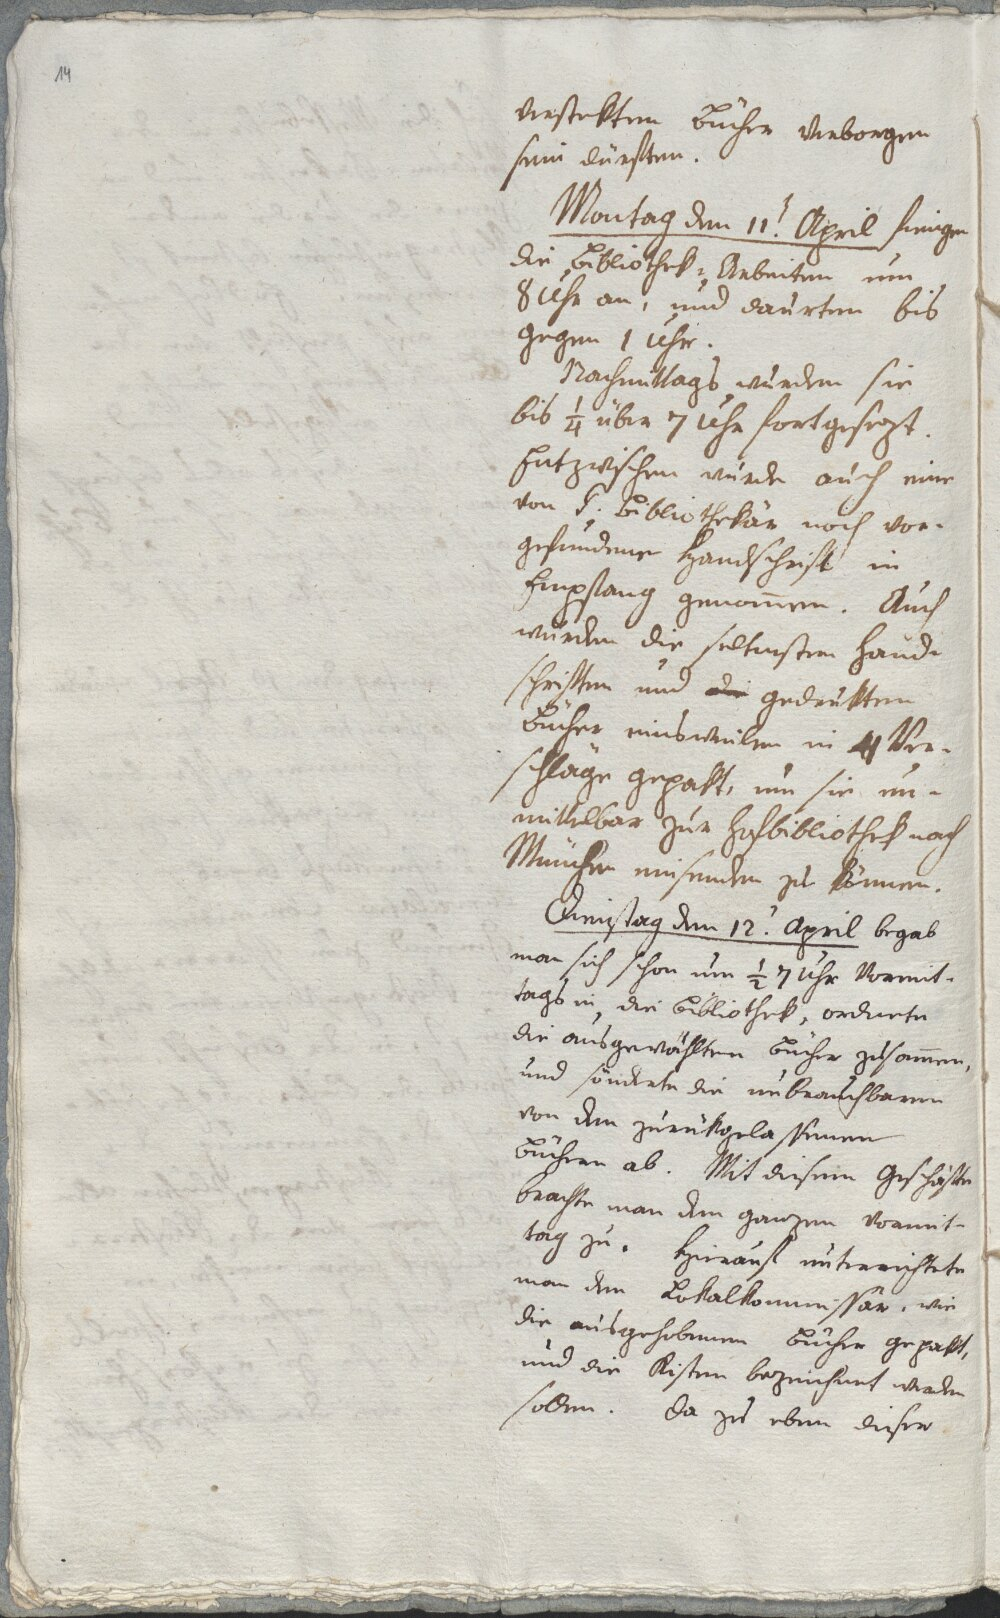 14
versteckten Bücher verborgen
sein dürften.
Montag den 11.t April fiengen
die Bibliothek-Arbeiten um
8 Uhr an, und daurten bis
gegen 1 Uhr.
Nachmittags wurden sie
bis 1/4 über 7 Uhr fortgesezt.
Inzwischen wurde auch eine
von H. Bibliothekär noch vor-
gefundene Handschrift in
Empfang genom̅en. Auch
wurden die seltensten Hand-
schriften und gedrukten
Bücher einsweilen in 4 Ver-
schläge gepakt, um sie un-
mittelbar zur Hofbibliothek nach
München einsenden zu können.
Dienstag den 12.t April begab
man sich schon um 1/2 7 Uhr Vormit-
tags in die Bibliothek, ordnete
die ausgewählten Bücher zusam̅en,
und sönderte die unbrauchbaren
von den zurükgelassenen
Büchern ab. Mit diesem Geschäfte
brachte man den ganzen Vormit-
tag zu. Hierauf unterrichtete
man den Lokalkommissär, wie
die ausgehobenen Bücher gepakt,
und die Kisten bezeichnet werden
sollen. Da zu eben dieser